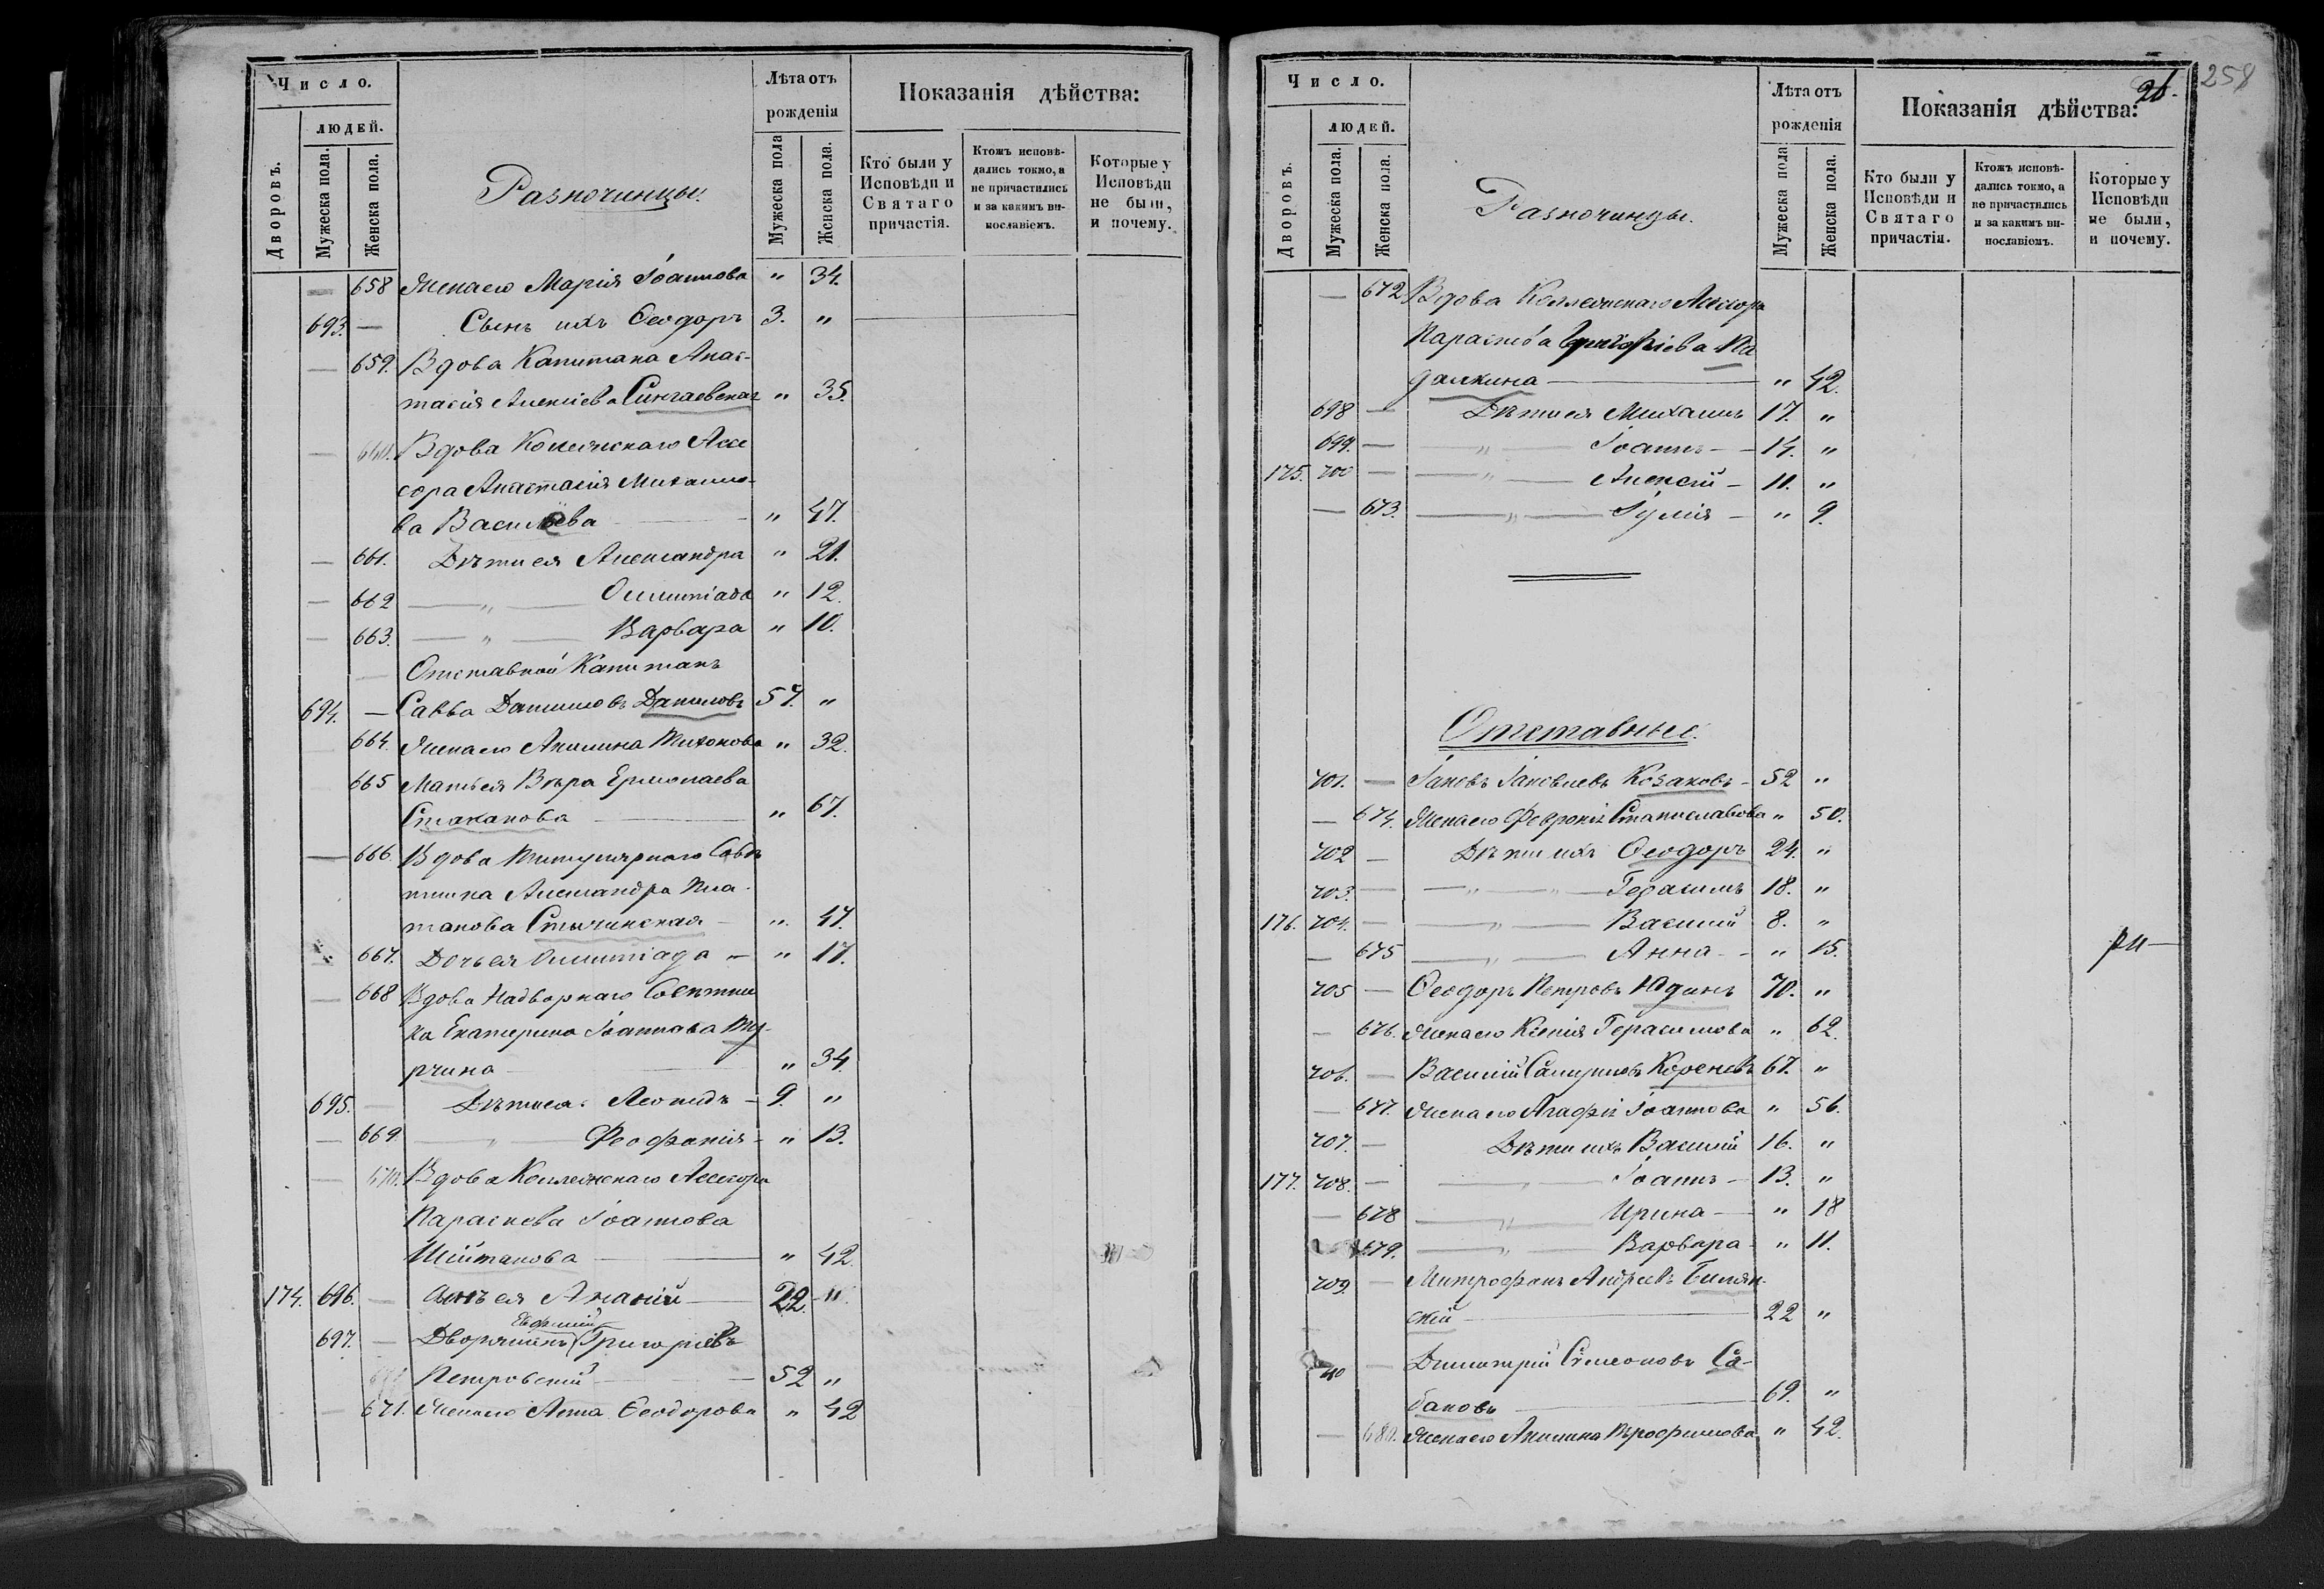 Число.
людей.
Дворовъ.
Мужеска пола.
Женска пола.
Разночинцы.
Лѣта отъ
рожденія
Мужеска пола
Женска пола.
Показанія дѣйства:
Кто были у
Исповѣди и
Святаго
причастія.
Ктожъ исповѣ-
дались токмо, а
не причастились
и за какимъ ви-
нословіемъ.
Которые у
Исповѣди
не были,
и почему.
— 658 Жена его Марія Іоаннова " 34.
693. — Сынъ ихъ Ѳеодоръ 3. "
— 659. Вдова Капитана Анас-
тасія Алексіева " 35.
— 660. Вдова Коллежскаго Ассе
сора Анастасія Михаило-
ва Васильева " 47.
— 661. Дѣти ея Александра " 21.
— 662 — " — Олимпіада " 12.
— 663. — " — Варвара " 10.
— Отставной Капитанъ
694. — Савва Даниловъ Даниловъ 57. "
664. Жена его Акилина Тихонова " 32.
665 Мать ея Вѣра Ермолаева
Стаканова — " 67.
— 666. Вдова Титулярнаго Совѣ
тника Александра Пла-
тонова — " 47.
— 667. Дочь ея Олимпіада — " 17.
— 668 Вдова Надворнаго Совѣтни
ка Екатерина Іоаннова Ту-
рчина — " 34.
695. — Дѣти ея: Леонидъ — 9. "
— 669. — " — Феофанія — " 13.
— 670. Вдова Коллежскаго Ассесора
Параскева Іоаннова
Шейтанова — " 42.
174. 696. — Сынъ ея Ананій — 22. "
Евфимій
697. — Дворянинъ Григоріевъ
Петровскій — 52 "
— 671. Жена его Анна Ѳеодорова " 42
26.
258
Число.
людей.
Дворовъ.
Мужеска пола.
Женска пола.
Разночинцы.
Лѣта отъ
рожденія
Мужеска пола
Женска пола.
Показанія дѣйства:
Кто были у
Исповѣди и
Святаго
причастія.
Ктожъ исповѣ-
дались токмо, а
не причастились
и за какимъ ви-
нословіемъ.
Которые у
Исповѣди
не были,
и почему.
— 672 Вдова Коллежскаго Ассесора
Параскева Григоріева Па
далкина — " 42.
698 — Дѣти ея Михаилъ 17. "
699. — — " — Іоаннъ — 14. "
175. 700 — — " — Алексій — 11. "
— 673. — " — Іулія — " 9.
Отставные.
701. — Іаковъ Іаковлевъ Козаковъ — 52 "
— 674. Жена его Феврокія Станиславова " 50.
702 — Дѣти ихъ Ѳеодоръ 24. "
703. — — " — " — Герасимъ 18. "
176. 704. — — " — Василій 8. "
— 675 — " — Анна — " 15.
705 — Ѳеодоръ Петровъ Юдинъ 70. "
— 676. Жена его Ксенія Герасимова " 62.
706. — Василій Кореневъ 67. "
— 677. Жена его Агафія Іоаннова " 56.
707. — Дѣти ихъ Василій 16. "
177. 708. — — " — Іоаннъ — 13. "
— 678 — " — Ирина — " 18
— 679. — " — Варвара — " 11.
709. — Митрофанъ Андреевъ
скій — 22 "
710 — Димитрій Симеоновъ Са-
бановъ — 69. "
— 680. Жена его Акилина Трофимова " 42.